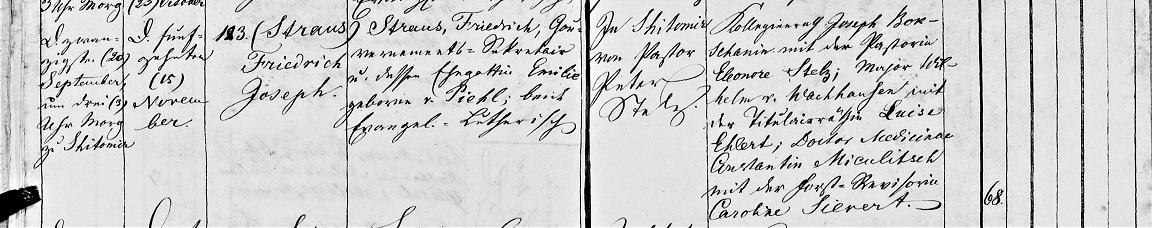 3 Uhr Morg
Zwan-
zigste (20)
September
um drei (3)
Uhr Morg
zu Shitomir
(23) October
D. funf-
zehnten
(15)
Novem
ber.
123. (Straus)
Friedrich
Joseph.
Straus, Friedrich, Gou-
vernements-Sekretair
u. dessen Ehegattin Emilie
geborne v. Piehl; beide
Evangel.-Lutherisch
In Shitomir
von Pastor
Peter
Stelz.
Kollegienrath Joseph
mit der Pastorin
Eleonore Stelz; Major Wil-
helm v. Wachhausen mit
der Titulairräthin Luise
Ehlert; Doctor Medicinae
Constantin Miculitsch
mit der Forst-Revisorin
Caroline Sievert.
68.